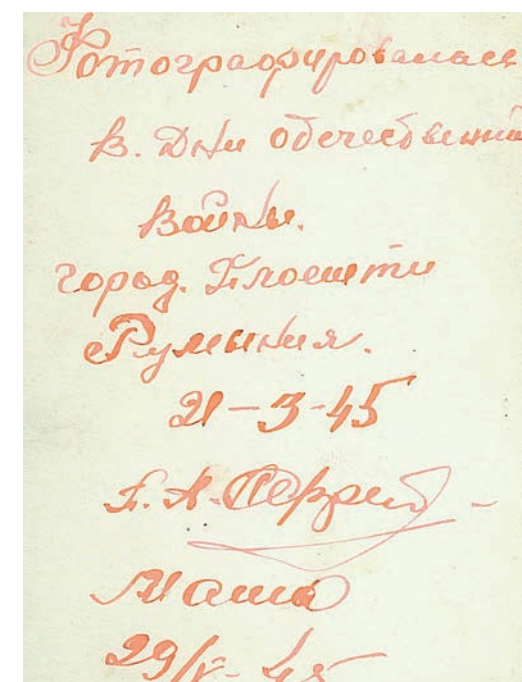 Фотографировалась
в. Дни отечествени
Войны.
город. Плоешти
Румыния.
21-3-45
Маша
29/V-45